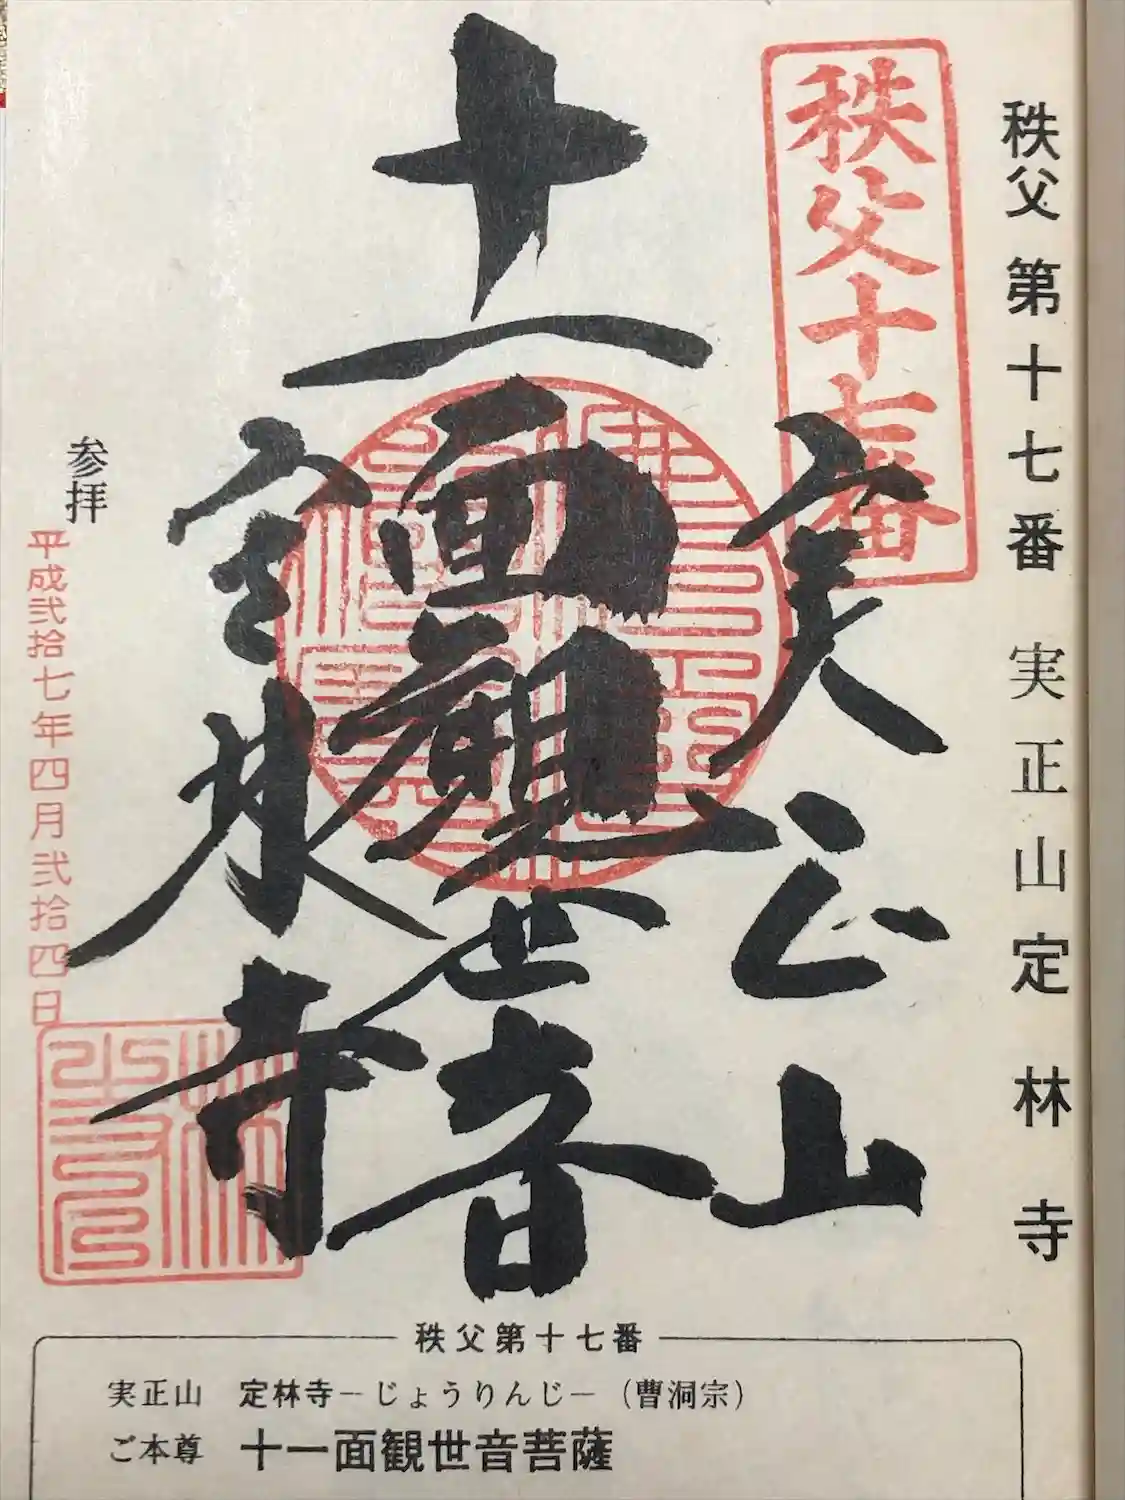 秩父第十七番 実正山定林寺
秩父十七番
実正山
十一面観世音
定林寺
参拝
平成弐拾七年四月弐拾四日
秩父第十七番
実正山 定林寺―じょうりんじ―（曹洞宗）
ご本尊 十一面観世音菩薩